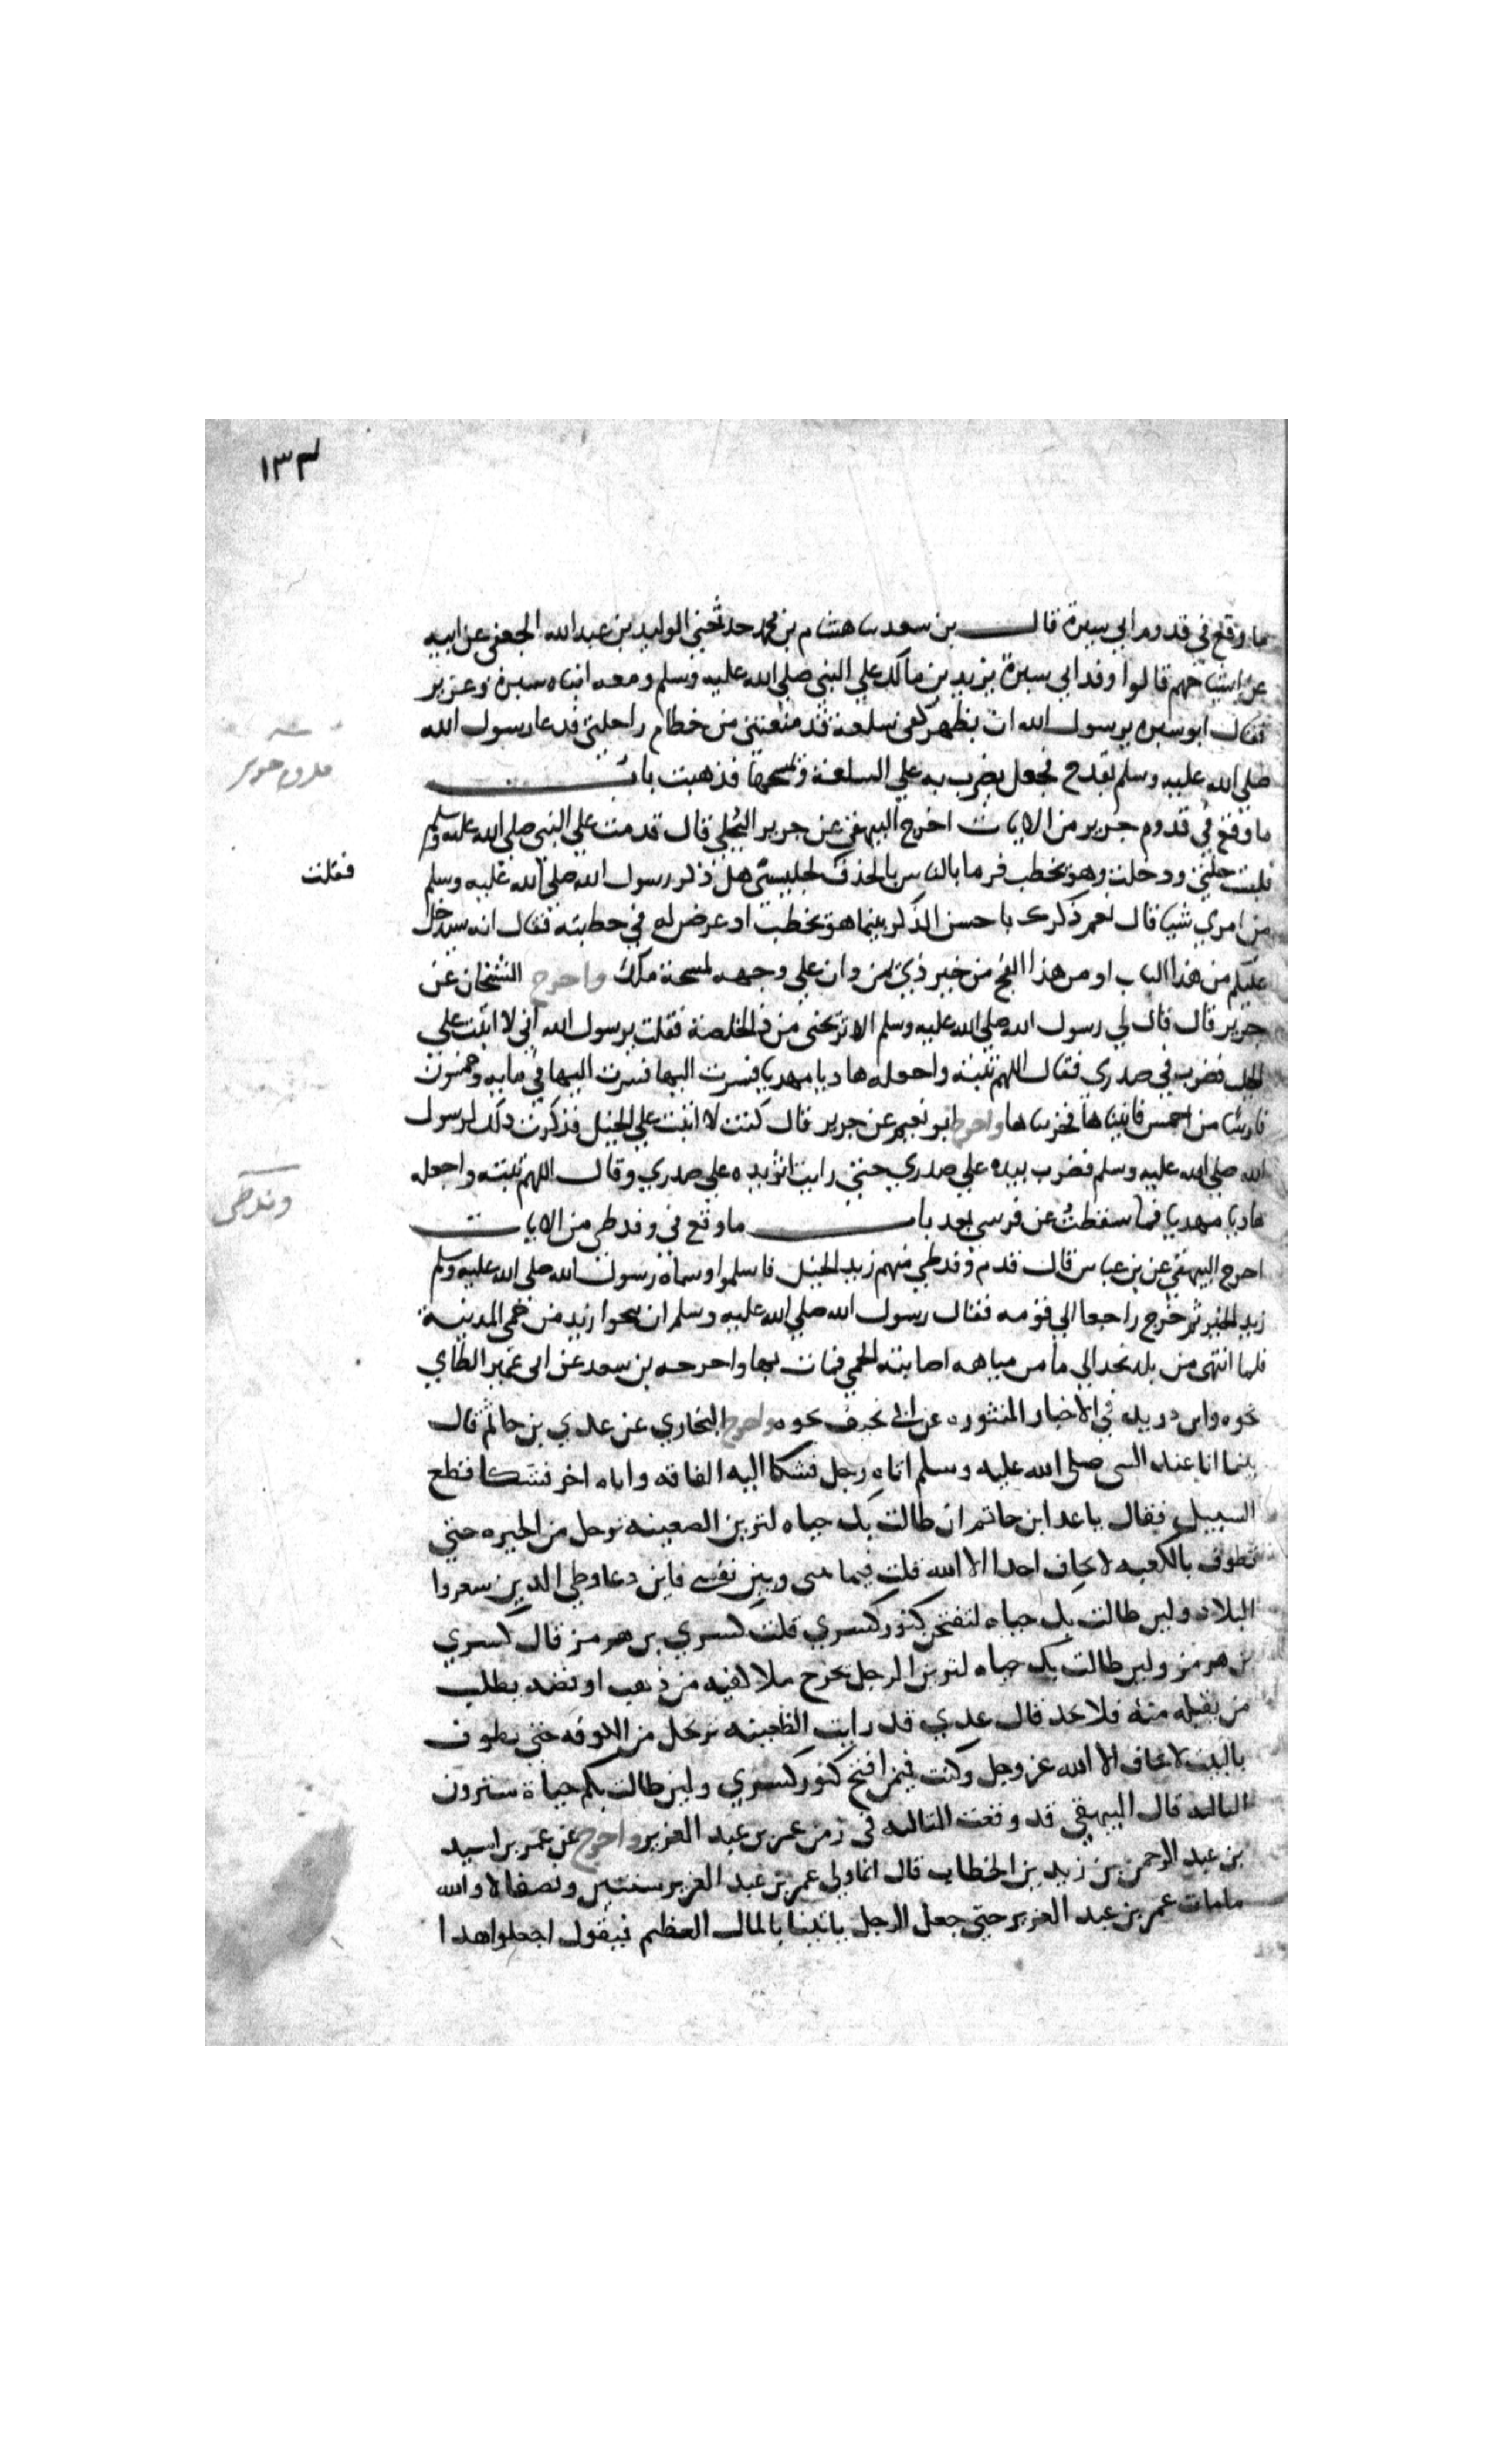 ١٣٣
ما وقع في قدوم ابي سبرة قال بن سعد ثنا هشام بن محمد حدثني الوليد بن عبد الله الجعفي عن ابيه
عن اشياخهم قالوا وفد ابي سبرة يزيد بن مالك علي النبي صلي الله عليه وسلم ومعه ابناه سبرة وعزيز
فقال ابو سبره يرسول الله ان بظهر كفي سلعة قد منعتني من خطام راحلتي فدعا رسول الله
صلي الله عليه وسلم بقدح فجعل يضرب به علي السلعة ويمسحها فذهبت باب
قدوم جرير
ما وقع في قدوم جرير من الايات اخرج البيهقي عن جرير البجلي قال قدمت علي النبي صلي الله عليه وسلم
فلبست حلتي ودخلت وهو يخطب فرما بالناس بالحذق لجليسي هل ذكر رسول الله صلي الله عليه وسلم
فقلت
من امري شيا قال نعم ذكرك باحسن الذكر بينما هو يخطب اد عرض له في خطبته فقال انه سيدخل
عليكم من هذا الباب او من هذا الفج من خير ذي يمن وان علي وجهه لمسحة ملك واخرج الشيخان عن
جرير قال قال لي رسول الله صلي الله عليه وسلم الا تريحني من ذي الخلصة فقلت يرسول الله اني لا اثبت علي
الخيل فضرب في صدري فقال اللهم ثبته واجعله هاديا مهديا فسرت اليها فسرت اليها في مايه وخمسون
فارسا من احمس فاتيناها فخربناها واخرج ابو نعيم عن جرير قال كنت لا اثبت علي الخيل فذكرت ذلك لرسول
الله صلي الله عليه وسلم فضرب بيده علي صدري حتي رايت اثر يده علي صدري وقال اللهم ثبته واجعله
وفد طي
هاديا مهديا فما سقطت عن فرسي بعد باب ما وقع في وفد طي من الايات
اخرج البيهقي عن بن عباس قال قدم وفد طي فيهم زيد الخيل فاسلموا وسماه رسول الله صلي الله عليه وسلم
زيد الخير ثم خرج راجعا الي قومه فقال رسول الله صلي الله عليه وسلم ان ينجوا زيد من حمي المدينة
فلما انتهى من بلد نجد الي ما من مياهه اصابته الحمي فمات بها واخرجه بن سعد عن ابي عمير الطاي
نحوه وابن دريد في الاخبار المنثوره عن ابي مخنف نحوه واخرج البخاري عن عدي بن حاتم قال
بينما انا عند النبي صلي الله عليه وسلم اتاه رجل فشكا اليه الفاقه واتاه اخر فشكا قطع
السبيل فقال يا عد ابن حاتم ان طالت بك حياه لترين الضعينه ترحل من الحيره حتي
تطوف بالكعبه لا تخاف احدا الا الله قلت فيما بيني وبين نفسي فاين دعار طي الذين سعروا
البلاد ولين طالت بك حياه لتفتحن كنوز كسري قلت كسري بن هرمز قال كسري
بن هرمز ولين طالت بك حياه لترين الرجل يخرج ملا كفيه من ذهب او فضه يطلب
من يقبله منه فلا يجد قال عدي قد رايت الظعينه ترتحل من الكوفه حتي تطوف
بالبيت لا تخاف الا الله عز وجل وكنت فيمن افتح كنوز كسري ولين طالت بكم حياة سترون
الثالثه قال البيهقي قد وقعت الثالثه في زمن عمر بن عبد العزيز واخرج عن عمر بن اسيد
بن عبد الرحمن بن زيد بن الخطاب قال انما ولي عمر بن عبد العزيز سنتين ونصفا لا والله
ما مات عمر بن عبد العزيز حتي جعل الرجل ياتينا بالمال العظيم فيقول اجعلوا هدا